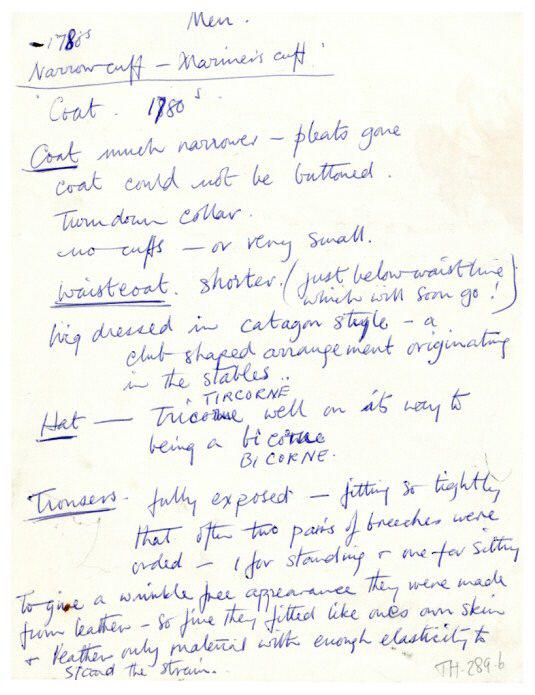 Men.
- 1780s
Narrow cuff - Mariner's cuff
Coat. 1780s.
Coat much narrower - pleats gone
coat could not be buttoned.
Turndown collar.
no cuffs - or very small.
Waistcoat. shorter. (just below waistline
which will soon go!)
Wig dressed in catagon style - a
club shaped arrangement originating
in the stables..
TIRCORNE
Hat - Tricorne well on its way to
being a bicorne
BICORNE.
Trousers. fully exposed - fitting so tightly
that often two pairs of breeches were
orded - 1 for standing + one for sitting
To give a wrinkle free appearance they were made
from leather - so fine they fitted like ones own skin
+ leather only material with enough elasticity to
stand the strain.
TH-289-6